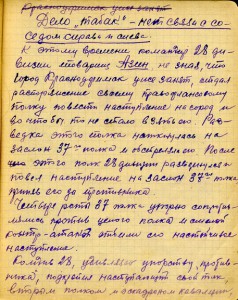 Красноуфимск уже занят
Дело „табак" – нет связи с со-
седом справа и слева.
К этому времени командир 28 ди-
визии товарищ Азен не зная, что
город Красноуфимск уже занят, отдал
распоряжение своему правофланговому
полку повести наступление на город и
во что бы то ни стало взять его. Раз-
ведка этого полка наткнулась на
заслон 37го полка и обстреляла. После
этого полк 28 дивизии развернулся и
повел наступление на заслон 37го полка
приняв его за противника.
Четыре роты 37 полка упорно сопротив-
лялись против целого полка и силой
контр-атаки отбили его настойчивое
наступление.
Комдив 28, удивлённый упорству против-
ника, подкрепил наступающий свой полк
вторым полком и эскадроном кавалерии,